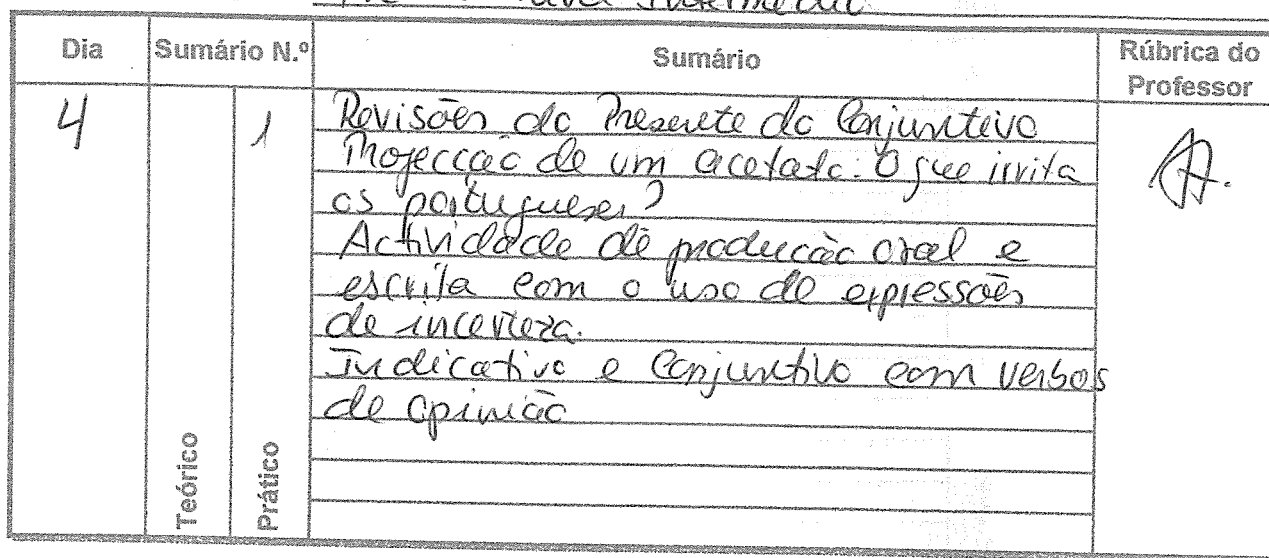 Nível Intermédio
Dia Sumário N.º Sumário Rúbrica do Professor
4 1 Revisões do Presente do Conjuntivo
Projecção de um acetato: O que irrita
os portugueses?
Actividade de produção oral e
escrita com o uso de expressões
de incerteza.
Indicativo e Conjuntivo com verbos
de opinião
Teórico Prático